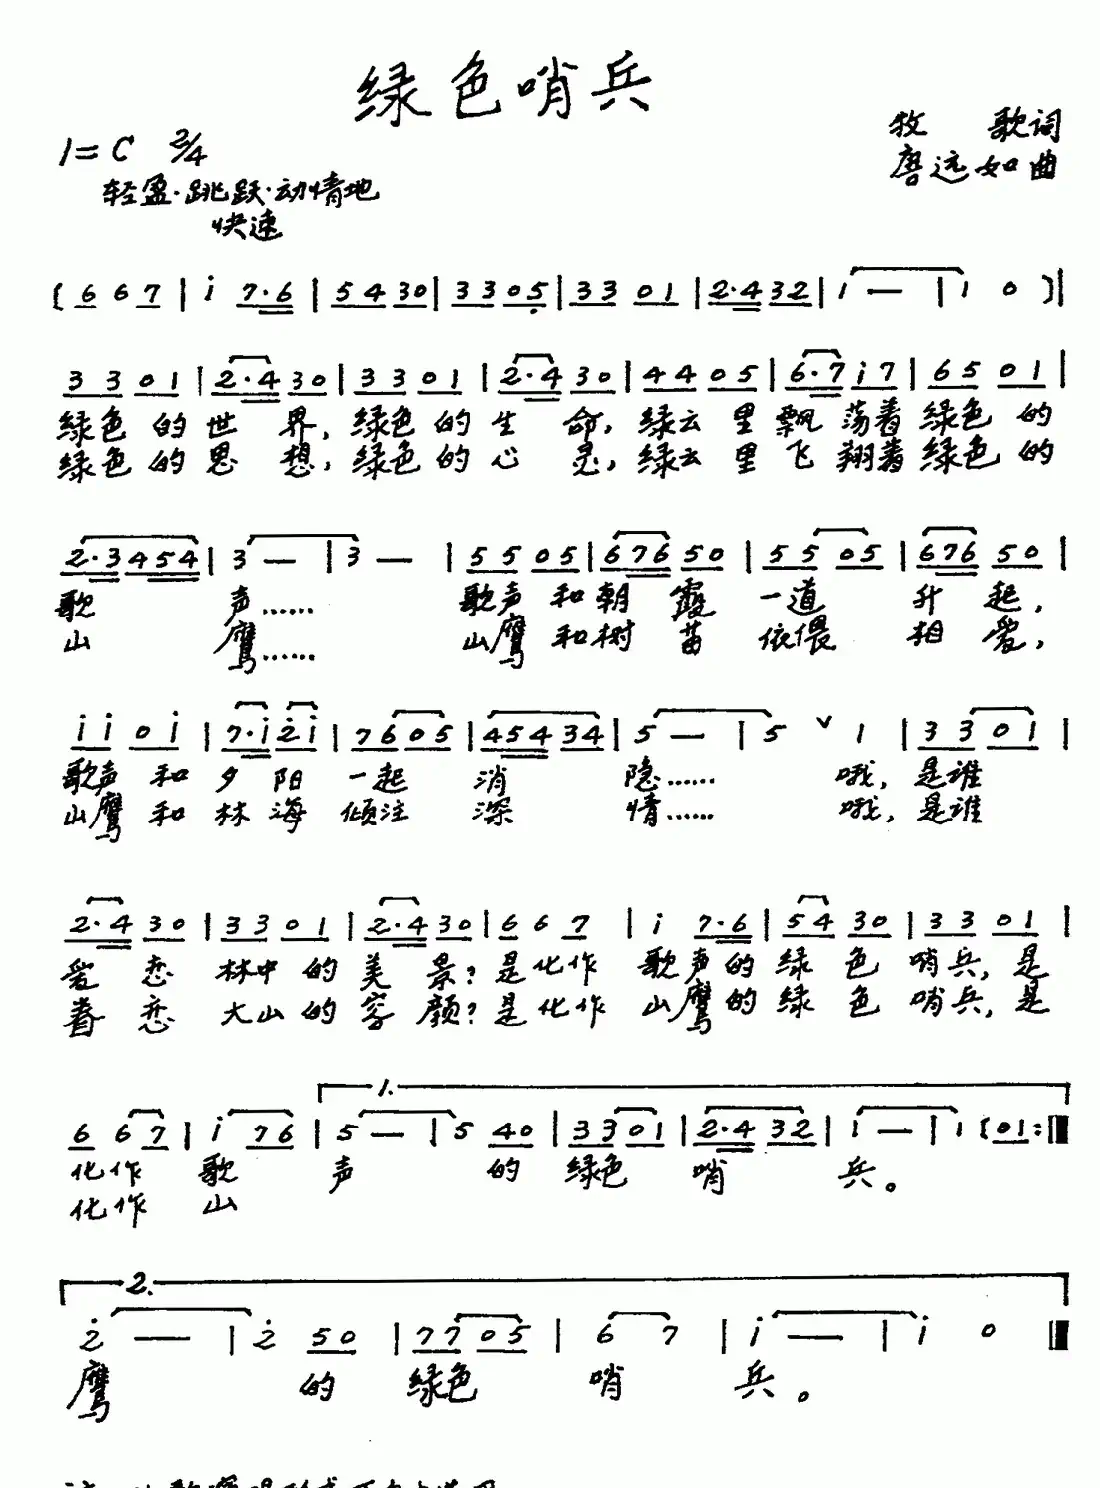 绿色哨兵
1=C 2/4
牧 歌词
唐远如曲
轻盈·跳跃·动情地
快速
( 6 6 7 | i 7·6 | 5 4 3 0 | 3 3 0 5 | 3 3 0 1 | 2·4 3 2 | 1 — | 1 0 ) ||
3 3 0 1 | 2·4 3 0 | 3 3 0 1 | 2·4 3 0 | 4 4 0 5 | 6·7 i 7 | 6 5 0 1 |
绿色 的 世 界, 绿色 的 生 命, 绿云 里 飘 荡着 绿色 的
绿色 的 思 想, 绿色 的 心 灵, 绿云 里 飞 翔着 绿色 的
2·3 4 5 4 | 3 — | 3 — | 5 5 0 5 | 6 7 6 5 0 | 5 5 0 5 | 6 7 6 5 0 |
歌 声…… 歌声 和 朝 霞 一道 升 起,
山 鹰…… 山鹰 和 树 苗 依偎 相 爱,
i i 0 i | 7·i 2 i | 7 6 0 5 | 4 5 4 3 4 | 5 — | 5 ˅ 1 | 3 3 0 1 |
歌声 和 夕 阳 一起 消 隐…… 哦, 是谁
山鹰 和 林 海 倾注 深 情…… 哦, 是谁
2·4 3 0 | 3 3 0 1 | 2·4 3 0 | 6 6 7 | i 7·6 | 5 4 3 0 | 3 3 0 1 |
爱 恋 林中 的 美 景? 是化作 歌声的 绿 色 哨兵, 是
眷 恋 大山 的 容 颜? 是化作 山鹰的 绿 色 哨兵, 是
1.
6 6 7 | i 7 6 | 5 — | 5 4 0 | 3 3 0 1 | 2·4 3 2 | 1 — | 1 ( 0 1 :||
化作 歌 声 的 绿色 哨 兵。
化作 山
2.
2 — | 2 5 0 | 7 7 0 5 | 6 7 | i — | i 0 ||
鹰 的 绿色 哨 兵。